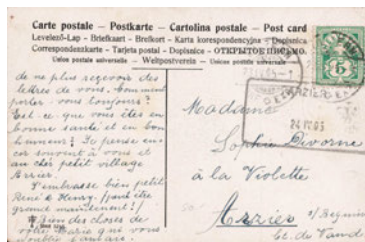 Carte postale — Postkarte — Cartolina postale — Post card
Levelező-Lap - Briefkaart - Brefkort - Karta korespondencyjna - Dopisnica
Correspondenzkarte - Tarjeta postal - Dopisnice - ОТКРЫТОЕ ПИСЬМО
Union postale universelle — Weltpostverein — Unione postale universale
de ne plus recevoir des
lettres de vous. Comment
portez-vous toujours?
Est-ce que vous êtes en
bonne santé et en bon
Je pense en-
cor souvent à vous et
au cher petit village
Arzier.
J'embrasse bien petit
René & Henry
grands maintenant!)
Bien des choses de
votre Marie qui vous
Madame
Sophie Divorne
à la Violette
Arzier s/Begnins
Ct. de Vaud
5
24 IV 05